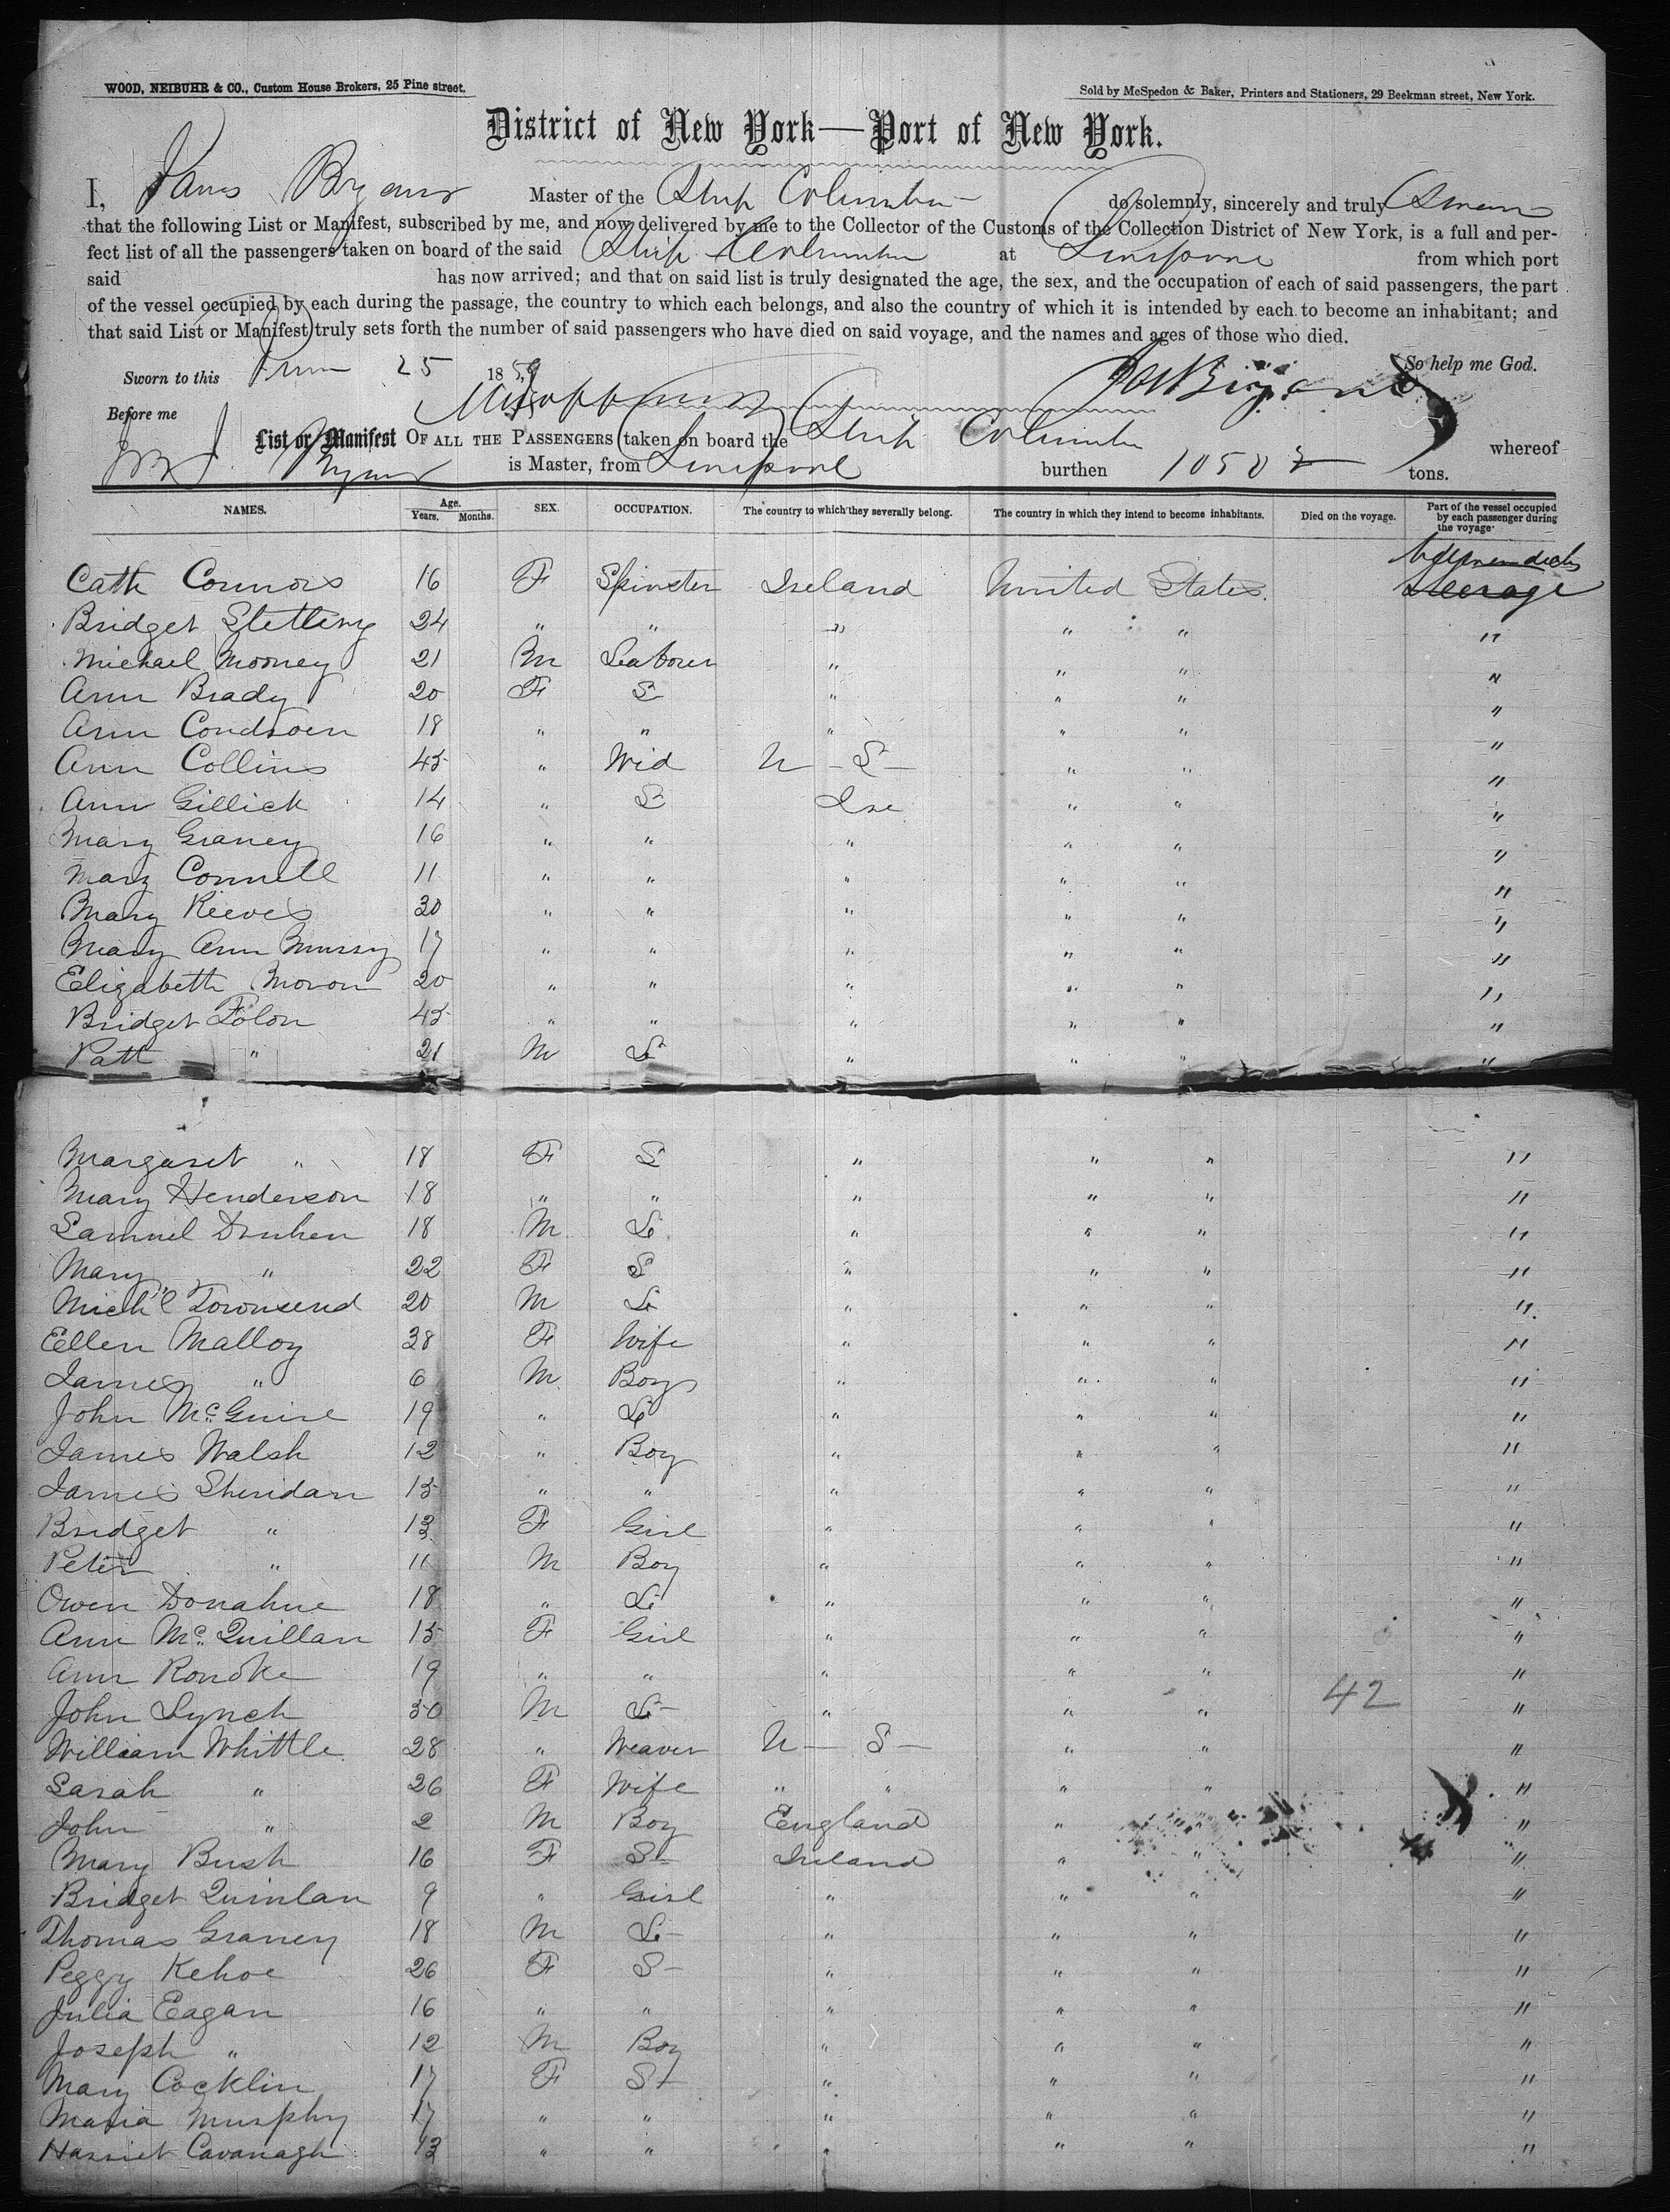 WOOD, NEIBUHR & CO., Custom House Brokers, 25 Pine street.
Sold by McSpedon & Baker, Printers and Stationers, 29 Beekman street, New York.
District of New York—Port of New York.
I, James Bryans Master of the Ship Columbia do solemnly, sincerely and truly Swear
that the following List or Manifest, subscribed by me, and now delivered by me to the Collector of the Customs of the Collection District of New York, is a full and per-
fect list of all the passengers taken on board of the said Ship Columbia at Liverpool from which port
said has now arrived; and that on said list is truly designated the age, the sex, and the occupation of each of said passengers, the part
of the vessel occupied by each during the passage, the country to which each belongs, and also the country of which it is intended by each to become an inhabitant; and
that said List or Manifest truly sets forth the number of said passengers who have died on said voyage, and the names and ages of those who died.
Sworn to this 25 1859 So help me God.
Before me
List or Manifest OF ALL THE PASSENGERS taken on board the Ship Columbia whereof
Bryans is Master, from Liverpool burthen 1050 tons.
NAMES. Age. Years. Months. SEX. OCCUPATION. The country to which they severally belong. The country in which they intend to become inhabitants. Died on the voyage. Part of the vessel occupied by each passenger during the voyage.
Cath Connors 16 F Spinster Ireland United States. Steerage
Bridget Stetleny 24 " " " " " "
Michael Mooney 21 M Labourer " " " "
Ann Brady 20 F S " " " "
Ann 18 " " " " " "
Ann Collins 45 " Wid U - S - " " "
Ann Gillick 14 " S Ire " " "
Mary Graney 16 " " " " " "
Mary Connell 11 " " " " " "
Mary Reeves 30 " " " " " "
Mary Ann Murry 17 " " " " " "
Elizabeth Moron 20 " " " " " "
Bridget Folon 45 " " " " " "
Patt " 21 M L " " " "
Margaret " 18 F S " " " "
Mary Henderson 18 " " " " " "
Samuel Druhen 18 M L " " " "
Mary " 22 F S " " " "
Mich'l Townsend 20 M L " " " "
Ellen Malloy 38 F Wife " " " "
James " 6 M Boy " " " "
John McGuire 19 " L " " " "
James Walsh 12 " Boy " " " "
James Sheridan 15 " " " " " "
Bridget " 13 F Girl " " " "
Peter " 11 M Boy " " " "
Owen Donahue 18 " L " " " "
Ann McQuillan 15 F Girl " " " "
Ann Rourke 19 " " " " " "
John Lynch 30 M L - " " " 42 "
William Whittle 28 " Weaver U - S - " " "
Sarah " 26 F Wife " " " " "
John " 2 M Boy England " "
Mary Bush 16 F S - Ireland " " "
Bridget Quinlan 9 " Girl " " " "
Thomas Graney 18 M L - " " " "
Peggy Kehoe 26 F S - " " " "
Julia Eagan 16 " " " " " "
Joseph " 12 M Boy " " " "
Mary Cocklin 17 F S - " " " "
Maria Murphy 17 " " " " " "
Harriet Cavanagh 13 " " " " " "